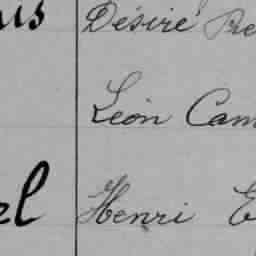 us Désiré
Léon Cam
el Henri E